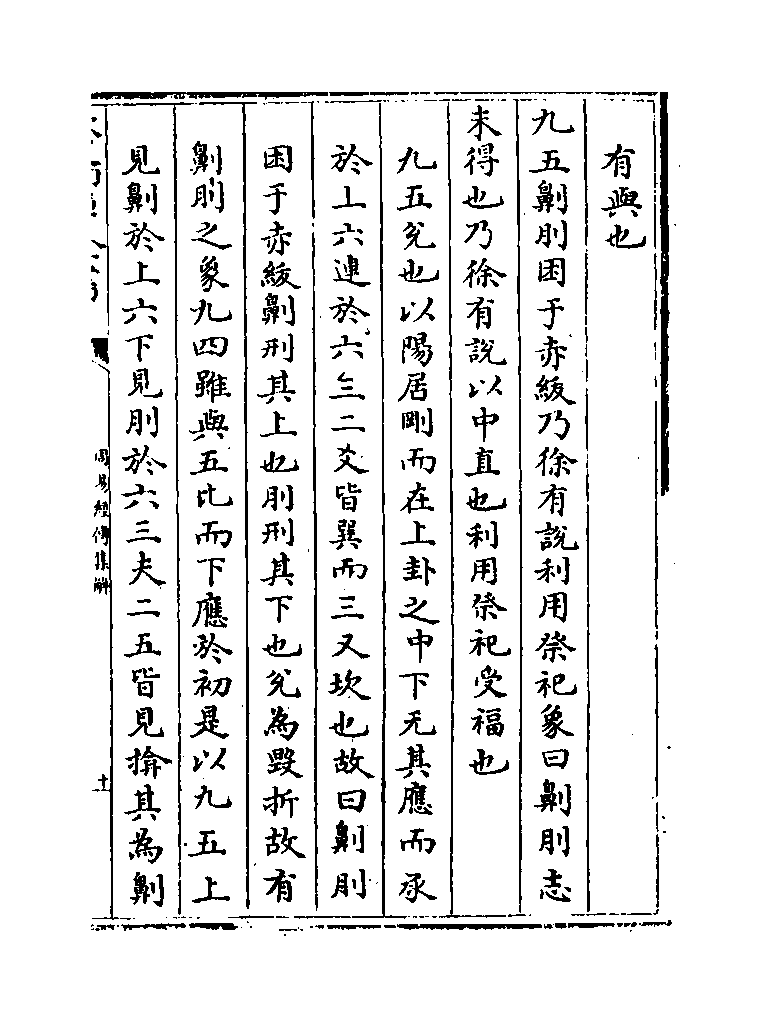 有與也
九五劓刖困于赤紱乃徐有說利用祭祀象曰劓刖志
未得也乃徐有說以中直也利用祭祀受福也
九五兊也以陽居剛而在上卦之中下无其應而承
於上六連於六三二爻皆巽而三又坎也故曰劓刖
困于赤紱劓刑其上也刖刑其下也兊為毀折故有
劓刖之象九四雖與五比而下應於初是以九五上
見劓於上六下見刖於六三夫二五皆見揜其為劓
周易經傳集解
十